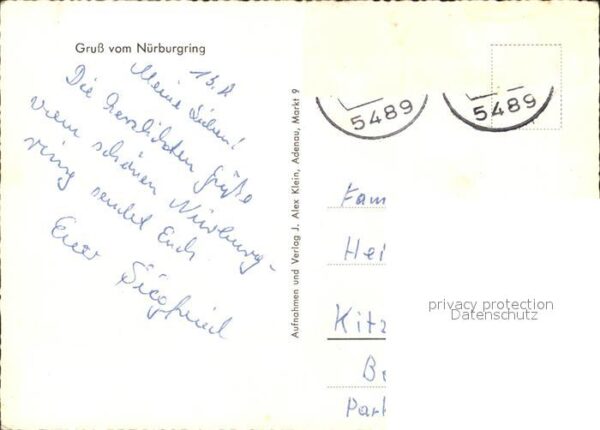 Gruß vom Nürburgring
13.8.
Meine Lieben!
Die herzlichsten Grüße
vom schönen Nürburg-
ring sendet Euch
Euer Siegfried
Aufnahmen und Verlag J. Alex Klein, Adenau, Markt 9
5489
5489
Fam
Hei
Kitz
Par
privacy protection
Datenschutz